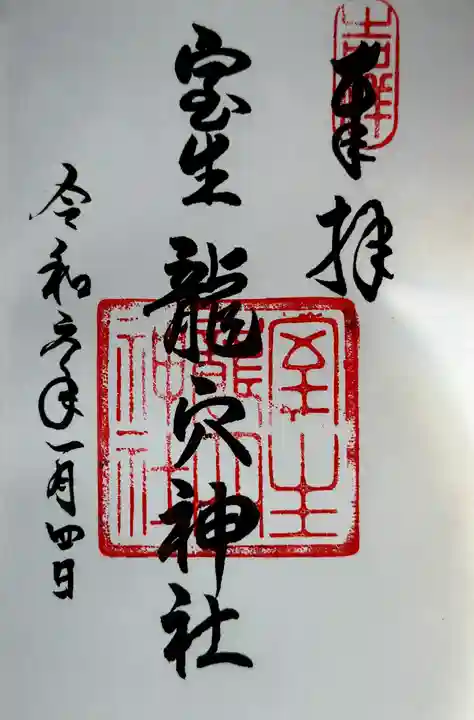 奉拝
吉祥
室生龍穴神社
室生
龍穴
神社
令和六年一月四日